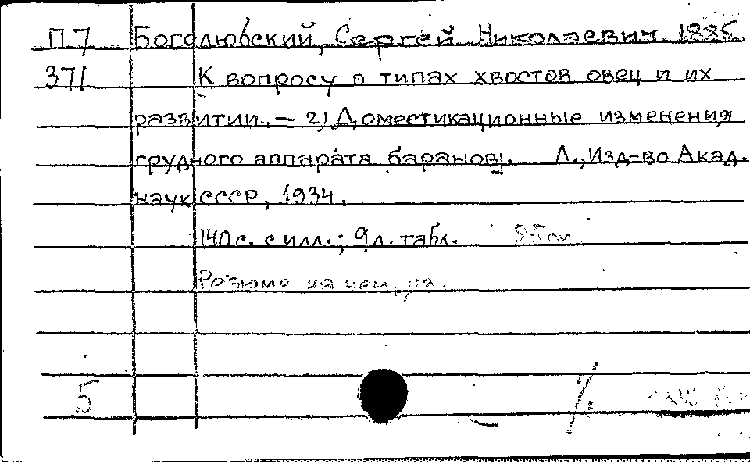 П.7 Боголюбский, Сергей Николаевич. 1885
371 К вопросу о типах хвостов овец и их
развитии. – 2) Доместикационные изменения
грудного аппарата баранов. Л., Изд-во Акад.
наук СССР, 1934.
140 с. с илл.; 9 л. табл.
Резюме на нем. яз.
5